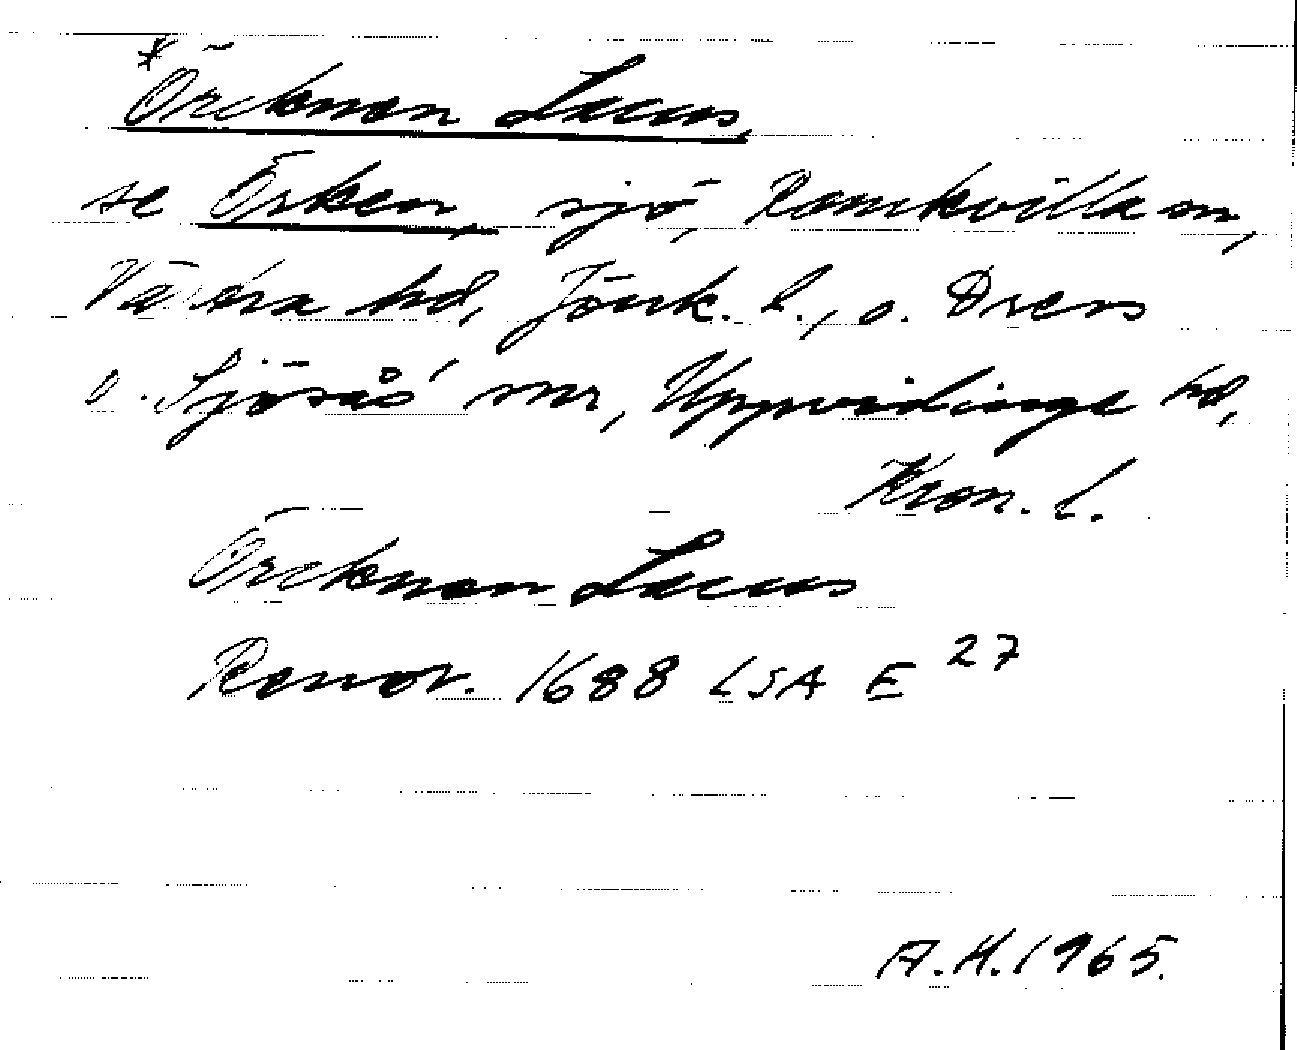 * Örcknen Lacus,
se Örken, sjö, Ramkvilla sn,
Västra hd, Jönk. l., o. Drevs
o. Sjösås snr, Uppvidinge hd,
Kron. l.
Örcknen Lacus
Renov. 1688 LSA E 27
A.H. 1965.